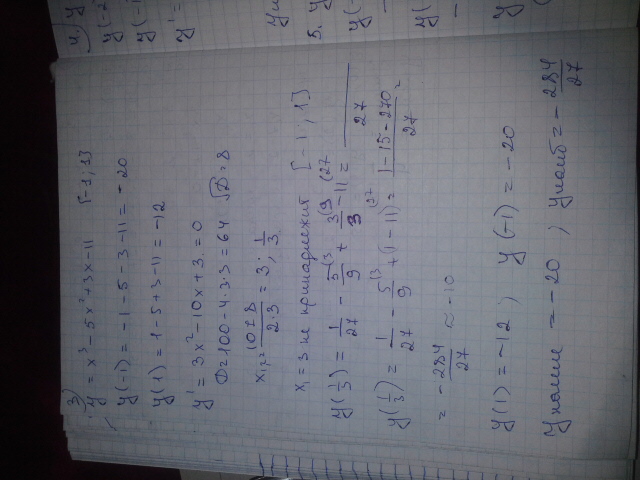 3)
y = x³ - 5x² + 3x - 11 [-1; 1]
y(-1) = -1 - 5 - 3 - 11 = -20
y(1) = 1 - 5 + 3 - 11 = -12
y' = 3x² - 10x + 3 = 0
D = 100 - 4·3·3 = 64 √D = 8
x₁,₂ = (10±8)/(2·3) = 3; 1/3
x₁ = 3 не принадлежит [-1; 1]
y(1/3) = 1/27 - 5/9 + 3/3 - 11 = /27
y(1/3) = 1/27 - 5/9 + (1 - 11) = (1 - 15 - 270)/27 =
= -284/27 ≈ -10
y(1) = -12, y(-1) = -20
y наим = -20, y наиб = -284/27
4) y
y(-2
y(-1
y' =
5. y
y(-
y(
y